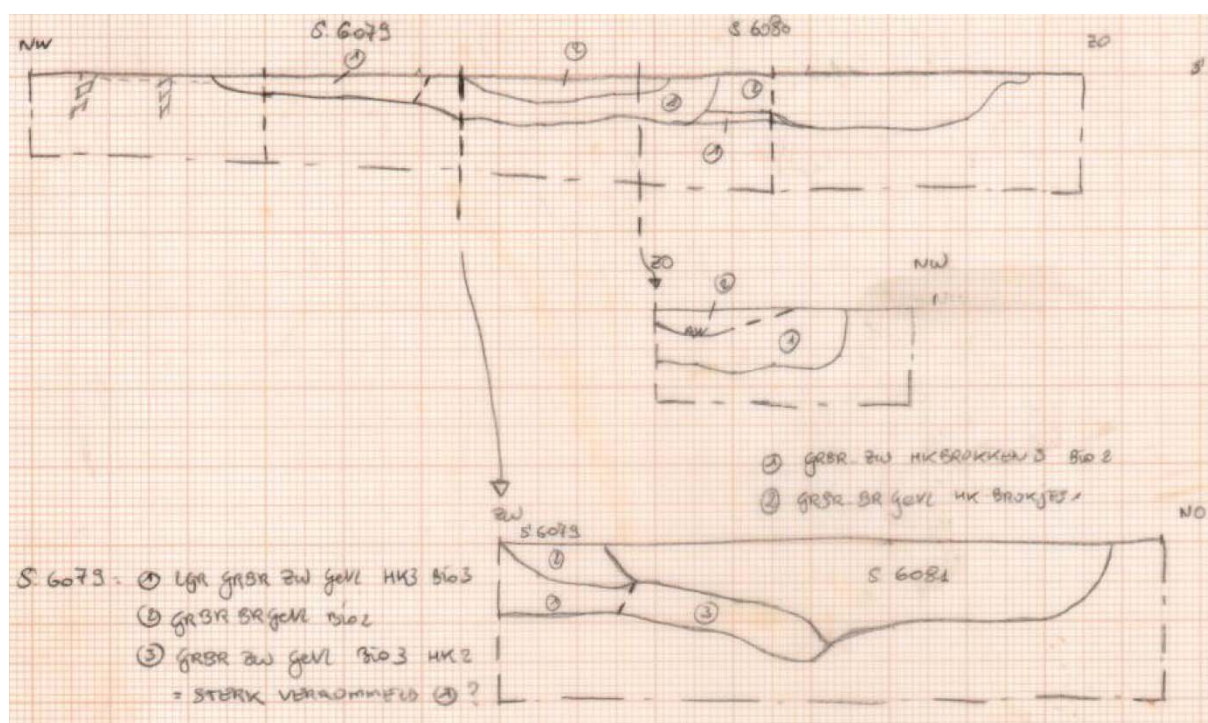 S 6079
S 6080
NW
ZO
2
1
2
1
1
ZO
NW
2
1
1 GRBR ZW HKBROKKEN 3 Bio 2
2 GRBR BR GEVL HK BROKJES 1
ZW
NO
S 6079
2
S 6081
1
3
S 6079 = 1 LGR GRBR ZW GeVL HK3 Bio3
2 GRBR BRGeVL Bio2
3 GRBR ZW GeVL Bio3 HK2
= STERK VERROMMELD 1 ?